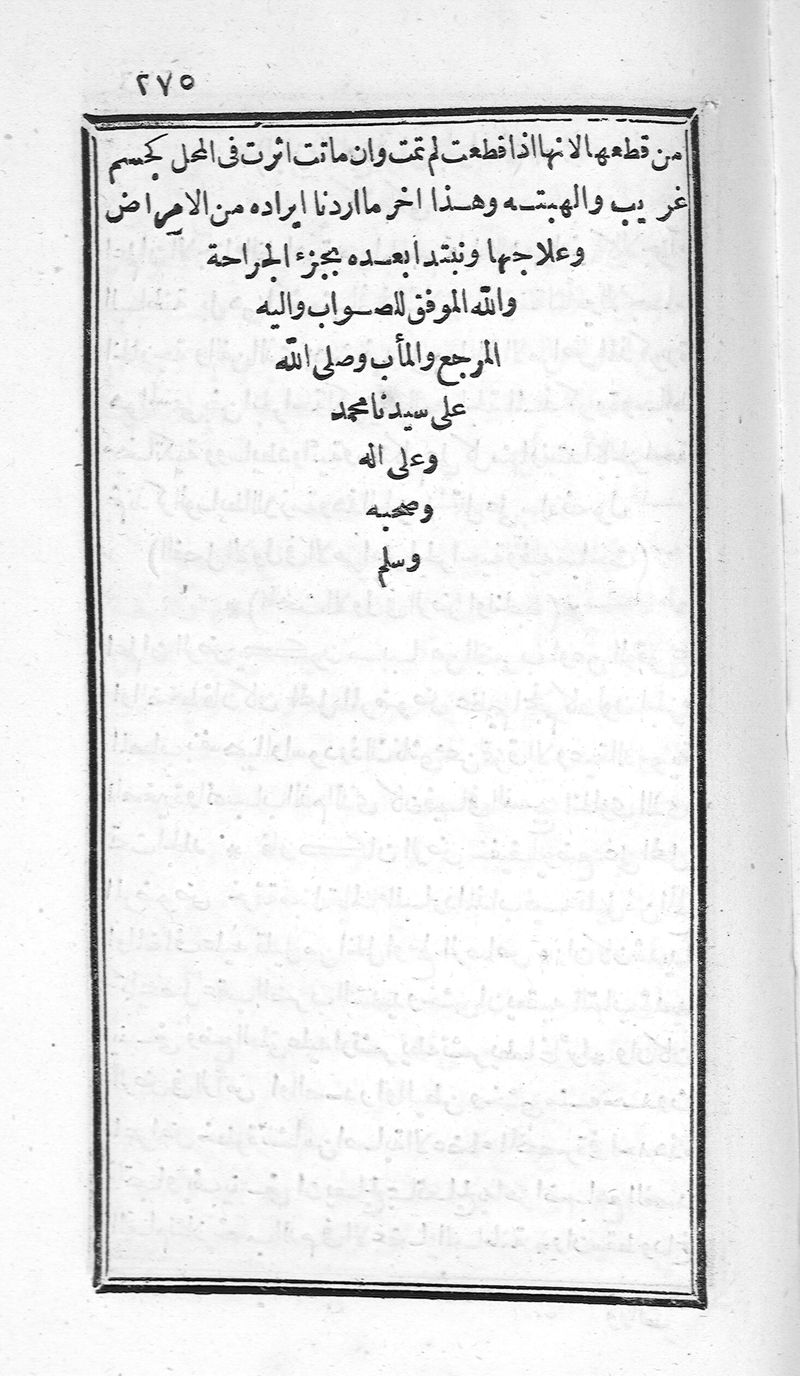 ٢٧٥
من قطعها لانها اذا قطعت لم تمت وان ماتت اثرت فى المحل كجسم
غريب والهبته وهذا اخر ما اردنا ايراده من الامراض
وعلاجها ونبتدأ بعده بجزء الجراحة
والله الموفق للصواب واليه
المرجع والمأب وصلى الله
على سيدنا محمد
وعلى اله
وصحبه
وسلم